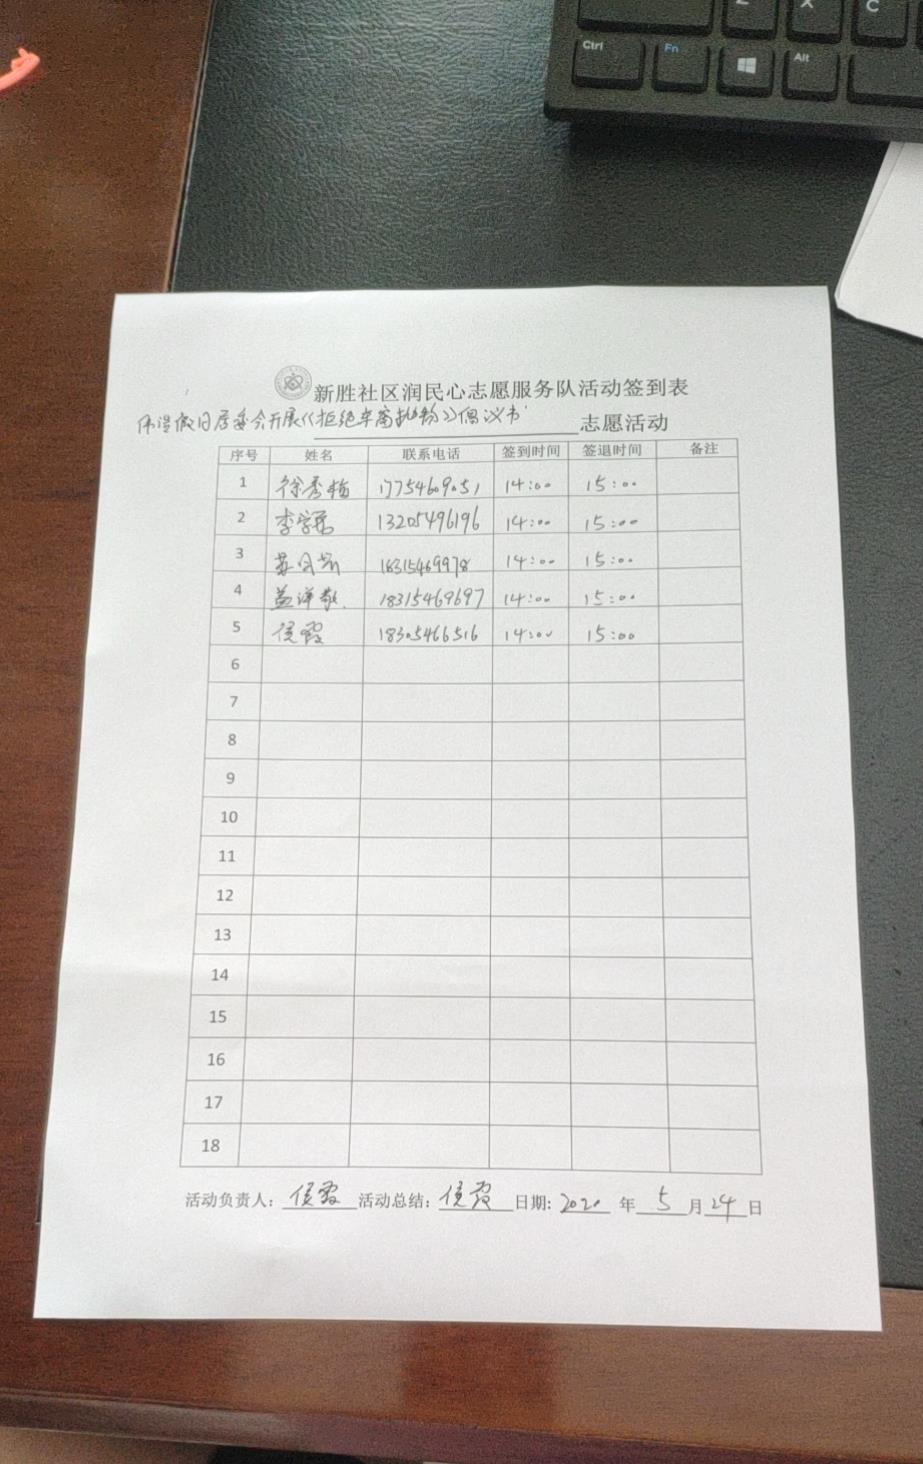 Z X C
Ctrl Fn Alt
新胜社区润民心志愿服务队活动签到表
伟浯假日居委会开展《拒绝车窗抛物》倡议书 志愿活动
序号 姓名 联系电话 签到时间 签退时间 备注
1 徐秀梅 17754609051 14:00 15:00
2 李学 13205496196 14:00 15:00
3 18315469978 14:00 15:00
4 盖洋 18315469697 14:00 15:00
5 侯霞 18305466516 14:00 15:00
6
7
8
9
10
11
12
13
14
15
16
17
18
活动负责人: 侯霞 活动总结: 侯霞 日期: 2020 年 5 月 24 日